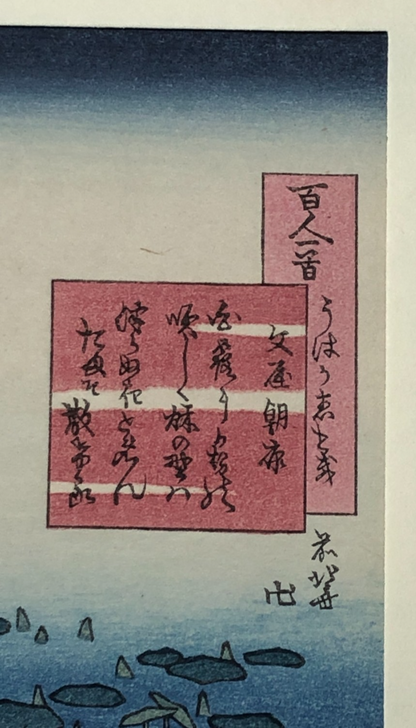 百人一首 うはかゑとき
文屋朝康
白露に風の
吹しく秌の野ハ
つらぬきとめぬ
たまそ散ける
前北斎
卍